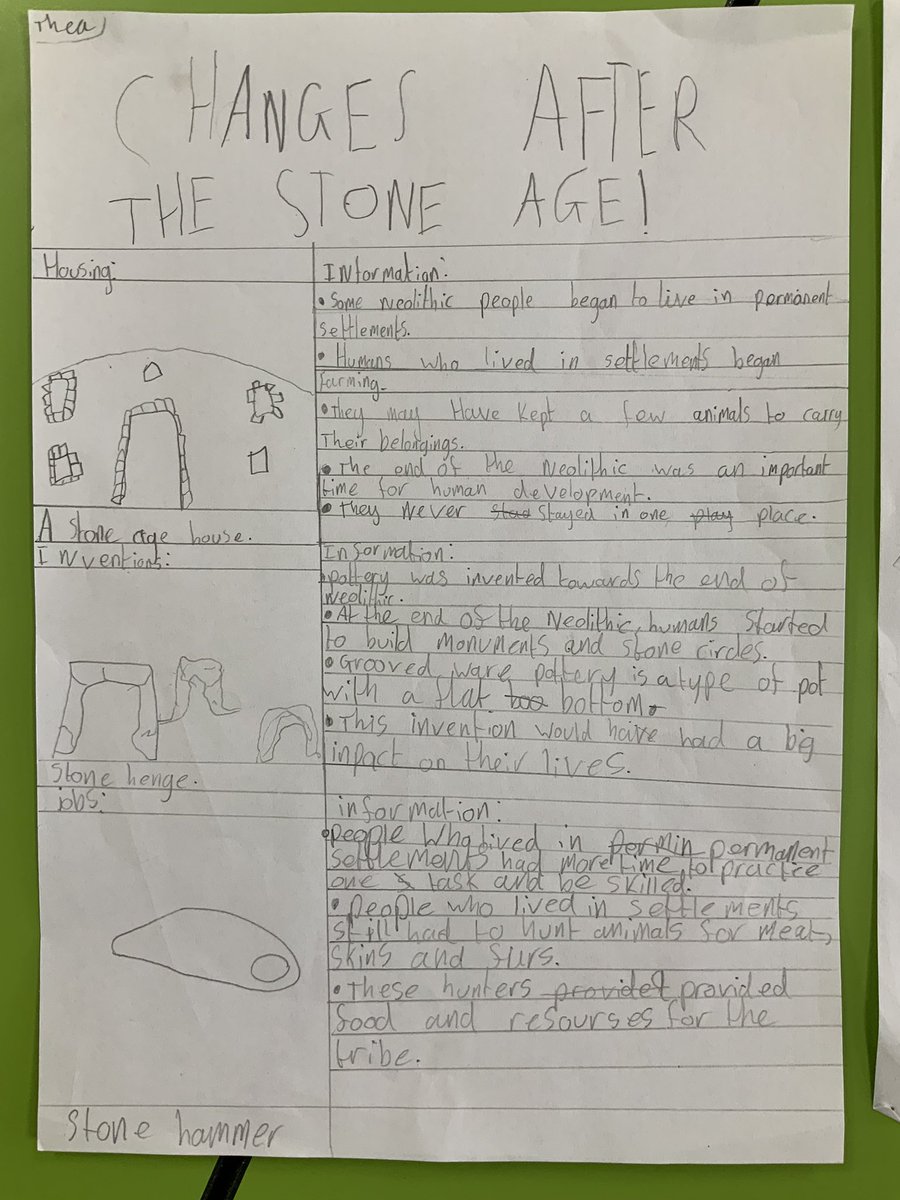 Thea
CHANGES AFTER
THE STONE AGE!
Housing:
A stone age house.
Information:
• Some neolithic people began to live in permanent
settlements.
• Humans who lived in settlements began
farming.
• They may Have kept a few animals to carry
Their belongings.
• The end of the Neolithic was an important
time for human development.
• They never stayed in one play place.
Inventions:
Stone henge.
Information:
pottery was invented towards the end of
neolithic.
• At the end of the Neolithic, humans started
to build monuments and stone circles.
• Grooved ware pottery is a type of pot
with a flat bottom.
• This invention would have had a big
inpact on their lives.
jobs:
Stone hammer
information:
• people who lived in permin permanent
settlements had more time to practice
one task and be skilled.
• people who lived in settlements
still had to hunt animals for meat,
skins and furs.
• These hunters providet provided
food and resourses for the
tribe.